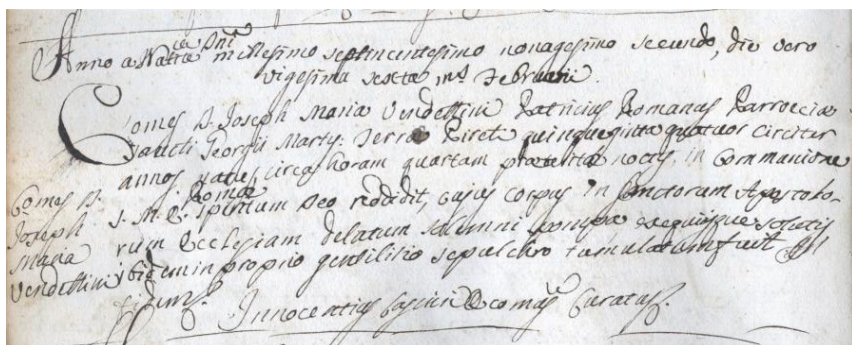 Anno a Nat.te Dni millesimo septincentesimo nonagesimo secundo, die vero
vigesima sexta ms Februarii.
Comes D. Joseph Maria Vendettini Patricius Romanus Parroecia
Sancti Georgii Marty: Terra quinquaginta quatuor circiter
annos natus, circa horam quartam noctis, in Communione
S. M. E. Romae spiritum Deo reddidit, cujus corpus in Sanctorum Aposto-
rum Ecclesiam delatum solemni pompa exequiisque solutis
ibidem in proprio gentilitio sepulchro tumulatum fuit
Comes D.
Joseph
Maria
Vendettini
Innocentius Curatus.